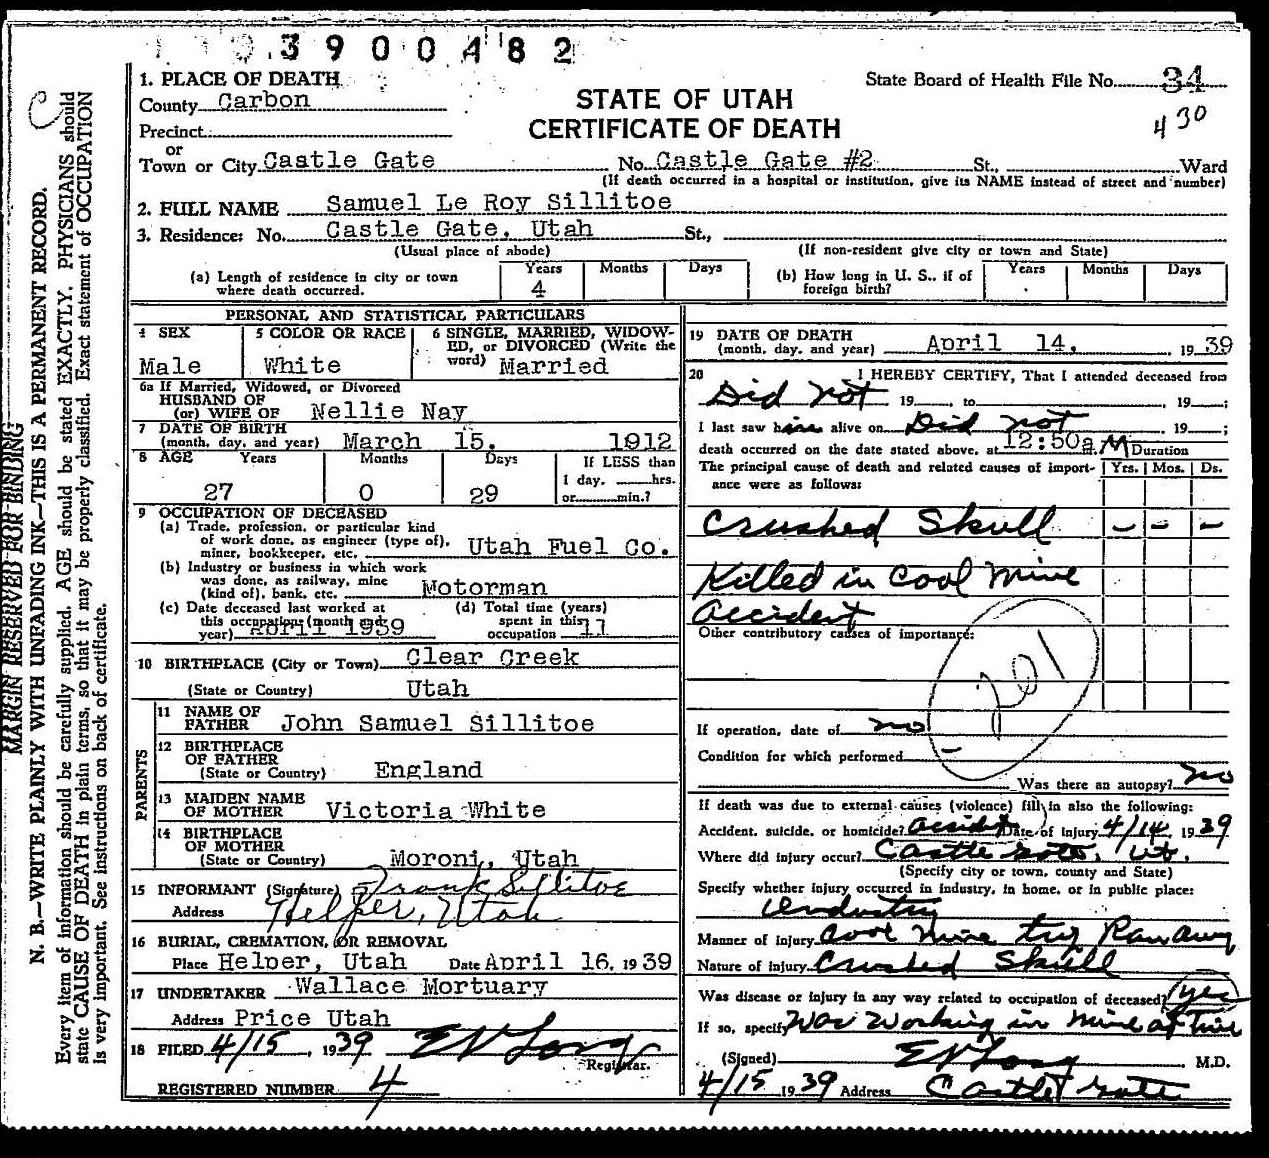 3900482
1. PLACE OF DEATH
State Board of Health File No. 34
County Carbon
STATE OF UTAH
430
Precinct
CERTIFICATE OF DEATH
or
Town or City Castle Gate No. Castle Gate #2 St., Ward
(If death occurred in a hospital or institution, give its NAME instead of street and number)
2. FULL NAME Samuel Le Roy Sillitoe
3. Residence: No. Castle Gate, Utah St.,
(Usual place of abode) (If non-resident give city or town and State)
(a) Length of residence in city or town where death occurred. Years 4 Months Days
(b) How long in U. S., if of foreign birth? Years Months Days
PERSONAL AND STATISTICAL PARTICULARS
4 SEX Male
5 COLOR OR RACE White
6 SINGLE, MARRIED, WIDOWED, or DIVORCED (Write the word) Married
6a If Married, Widowed, or Divorced
HUSBAND OF
(or) WIFE OF Nellie Nay
7 DATE OF BIRTH
(month, day, and year) March 15, 1912
8 AGE Years Months Days If LESS than
1 day, hrs.
27 0 29 or min.?
9 OCCUPATION OF DECEASED
(a) Trade, profession, or particular kind
of work done, as engineer (type of),
miner, bookkeeper, etc. Utah Fuel Co.
(b) Industry or business in which work
was done, as railway, mine
(kind of), bank, etc. Motorman
(c) Date deceased last worked at
this occupation (month and
year) April 1939
(d) Total time (years)
spent in this
occupation 11
10 BIRTHPLACE (City or Town) Clear Creek
(State or Country) Utah
PARENTS
11 NAME OF
FATHER John Samuel Sillitoe
12 BIRTHPLACE
OF FATHER
(State or Country) England
13 MAIDEN NAME
OF MOTHER Victoria White
14 BIRTHPLACE
OF MOTHER
(State or Country) Moroni, Utah
15 INFORMANT (Signature) Frank Sillitoe
Address Helper, Utah
16 BURIAL, CREMATION, OR REMOVAL
Place Helper, Utah Date April 16, 1939
17 UNDERTAKER Wallace Mortuary
Address Price Utah
18 FILED 4/15, 1939 E V Long
Registrar.
REGISTERED NUMBER 4
19 DATE OF DEATH
(month, day, and year) April 14, 1939
20 I HEREBY CERTIFY, That I attended deceased from
Did not 19, to 19;
I last saw him alive on Did not 19;
death occurred on the date stated above, at 12:50a.M
Duration
The principal cause of death and related causes of importance were as follows:
Yrs. Mos. Ds.
Crushed Skull - - -
Killed in Coal Mine
Accident
Other contributory causes of importance:
201
If operation, date of no
Condition for which performed
Was there an autopsy? no
If death was due to external causes (violence) fill in also the following:
Accident, suicide, or homicide? Accident Date of injury 4/14, 1939
Where did injury occur? Castle Gate, Ut.
(Specify city or town, county and State)
Specify whether injury occurred in industry, in home, or in public place:
Industry
Manner of injury Coal mine trip Ran away
Nature of injury Crushed Skull
Was disease or injury in any way related to occupation of deceased? yes
If so, specify Was Working in mine at time
(Signed) E V Long M.D.
4/15 1939 Address Castle Gate
C
MARGIN RESERVED FOR BINDING
N. B.—WRITE PLAINLY WITH UNFADING INK—THIS IS A PERMANENT RECORD.
Every item of information should be carefully supplied. AGE should be stated EXACTLY. PHYSICIANS should
state CAUSE OF DEATH in plain terms, so that it may be properly classified. Exact statement of OCCUPATION
is very important. See instructions on back of certificate.